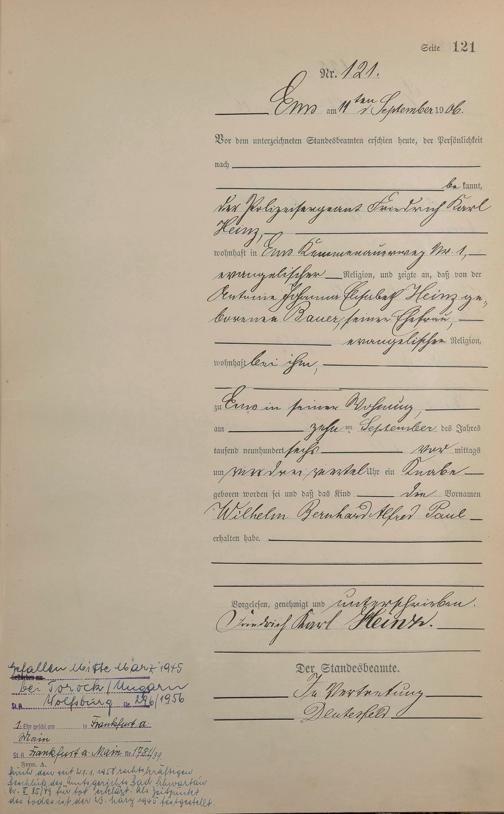 Seite 121
Nr. 121.
Ems am 11ten September 1906.
Vor dem unterzeichneten Standesbeamten erschien heute, der Persönlichkeit
nach
bekannt,
der Polizeisergeant Friedrich Karl
Heinz,
wohnhaft in Ems Kemmenauerweg Nr. 1,
evangelischer Religion, und zeigte an, daß von der
Antonie Johanna Elisabeth Heinz ge-
borenen Bauer, seiner Ehefrau,
evangelischer Religion,
wohnhaft bei ihm,
zu Ems in seiner Wohnung,
am zehnten September des Jahres
tausend neunhundert sechs vormittags
um drei viertel Uhr ein Knabe
geboren worden sei und daß das Kind die Vornamen
Wilhelm Bernhard Alfred Paul
erhalten habe.
Vorgelesen, genehmigt und unterschrieben.
Friedrich Karl Heinz.
Der Standesbeamte.
In Vertretung
gefallen Mitte März 1945
bei Torock/Ungarn
St.A. Wolfsburg Nr. 226/1956
1. Ehe geschl. am in Frankfurt a.
Main
St.A. Frankfurt a. Main Nr.
Durch den seit 1958 rechtskräftigen
Beschluß des Amtsgerichts Bad Schwartau
für tot erklärt. Als Zeitpunkt
des Todes ist der März 1945 festgestellt.